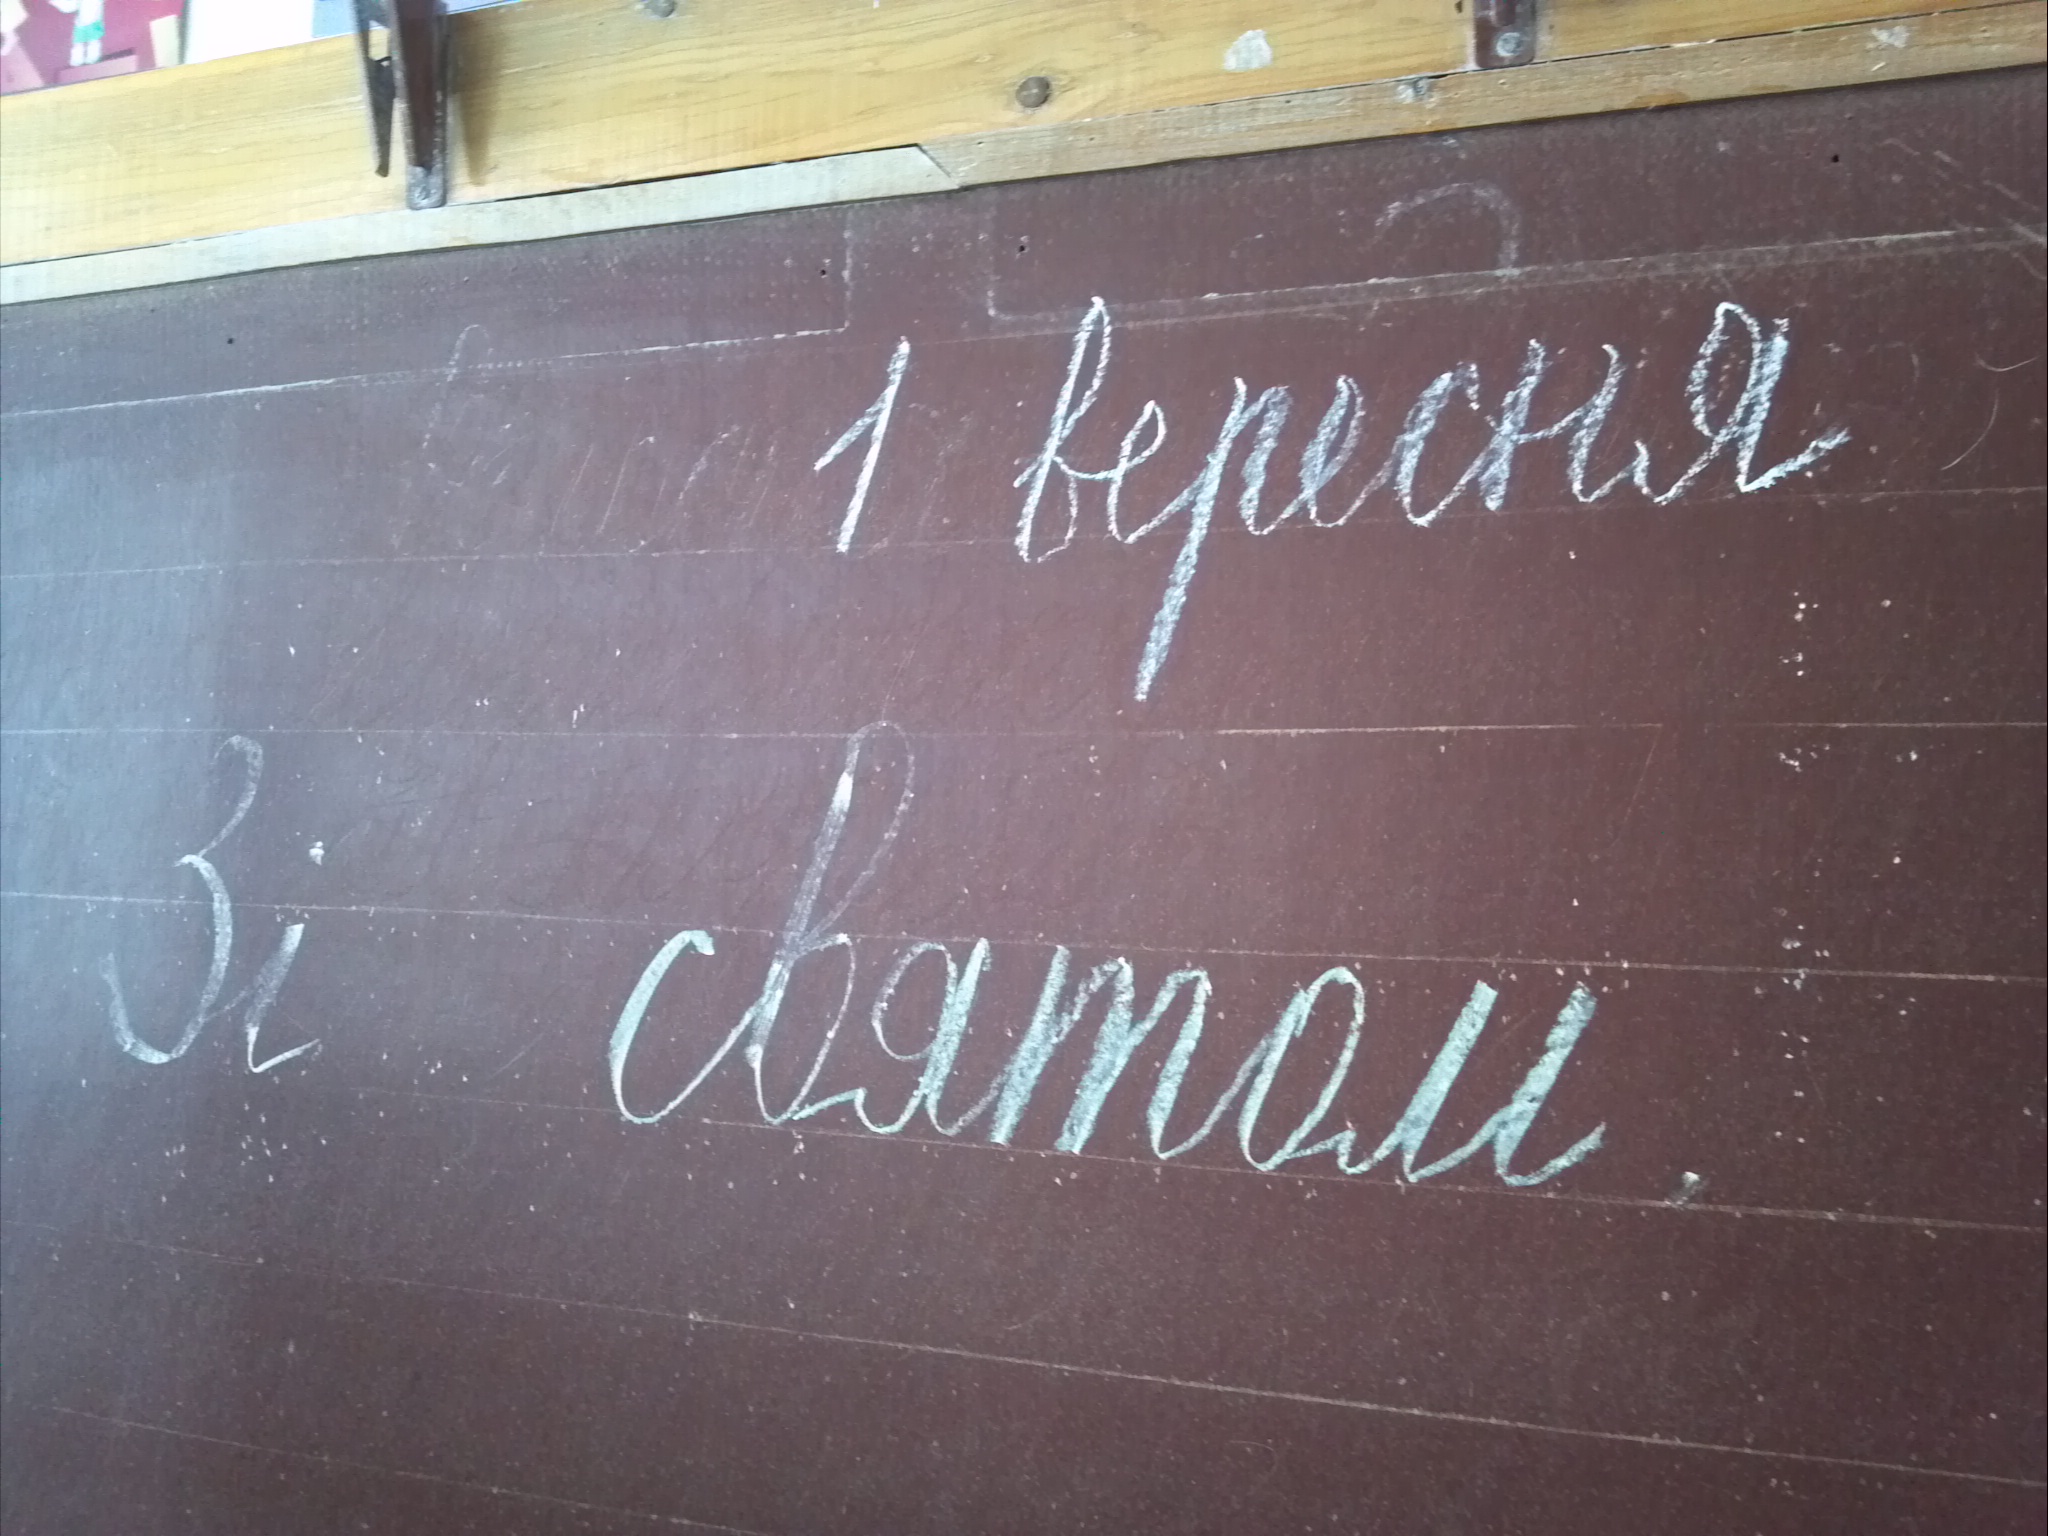 1 вересня
Зі святом.